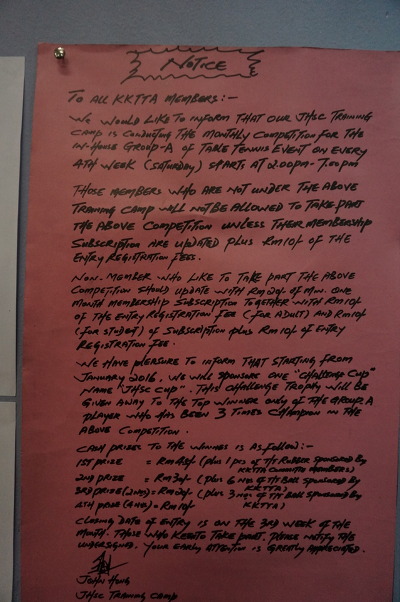 NOTICE
TO ALL KKTTA MEMBERS:-
WE WOULD LIKE TO INFORM THAT OUR JHSC TRAINING
CAMP IS CONDUCTING THE MONTHLY COMPETITION FOR THE
IN-HOUSE GROUP-A OF TABLE TENNIS EVENT ON EVERY
4TH WEEK (SATURDAY) STARTS AT 2.00PM-7.00PM
THOSE MEMBERS WHO ARE NOT UNDER THE ABOVE
TRAINING CAMP WILL NOT BE ALLOWED TO TAKE PART
THE ABOVE COMPETITION UNLESS THEIR MEMBERSHIP
SUBSCRIPTION ARE UPDATED PLUS RM10/- OF THE
ENTRY REGISTRATION FEES.
NON-MEMBER WHO LIKE TO TAKE PART THE ABOVE
COMPETITION SHOULD UPDATE WITH RM20/- OF MIN. ONE
MONTH MEMBERSHIP SUBSCRIPTION TOGETHER WITH RM10/-
OF THE ENTRY REGISTRATION FEE (FOR ADULT) AND RM10/-
(FOR STUDENT) OF SUBSCRIPTION PLUS RM10/- OF ENTRY
REGISTRATION FEE.
WE HAVE PLEASURE TO INFORM THAT STARTING FROM
JANUARY 2016. WE WILL SPONSOR ONE "CHALLENGE CUP"
NAME "JHSC CUP". THIS CHALLENGE TROPHY WILL BE
GIVEN AWAY TO THE TOP WINNER ONLY OF THE GROUP A
PLAYER WHO HAS BEEN 3 TIMES CHAMPION IN THE
ABOVE COMPETITION.
CASH PRIZE TO THE WINNES IS AS FOLLOW:-
1ST PRIZE = (PLUS 1 PCS OF T/T RUBBER SPONSORED BY
KKTTA COMMITTEE MEMBERS)
2ND PRIZE = RM30/- (PLUS 6 NOS OF T/T BALL SPONSORED BY
KKTTA)
3RD PRIZE (2NOS) = RM20/- (PLUS 3 NOS OF T/T BALL SPONSORED BY
4TH PRIZE (4NOS) = RM10/- KKTTA)
CLOSING DATE OF ENTRY IS ON THE 3RD WEEK OF THE
MONTH. THOSE WHO KEEN TO TAKE PART, PLEASE NOTIFY THE
UNDERSIGNED. YOUR EARLY ATTENTION IS GREATLY APPRECIATED.
JOHN HONG
JHSC TRAINING CAMP